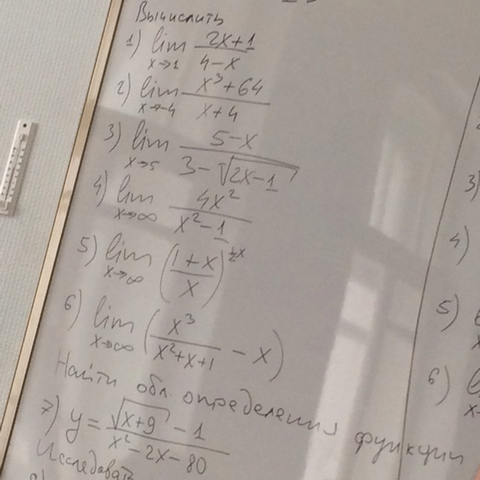 Вычислить
1) lim x→1 (2x+1)/(4-x)
2) lim x→-4 (x³+64)/(x+4)
3) lim x→5 (5-x)/(3-√(2x-1))
4) lim x→∞ 4x²/(x²-1)
5) lim x→∞ ((1+x)/x)
6) lim x→∞ (x³/(x²+x+1) - x)
Найти обл. определения функции
7) y = (√(x+9) - 1)/(x²-2x-80)
Исследовать
3)
4)
5)
6)